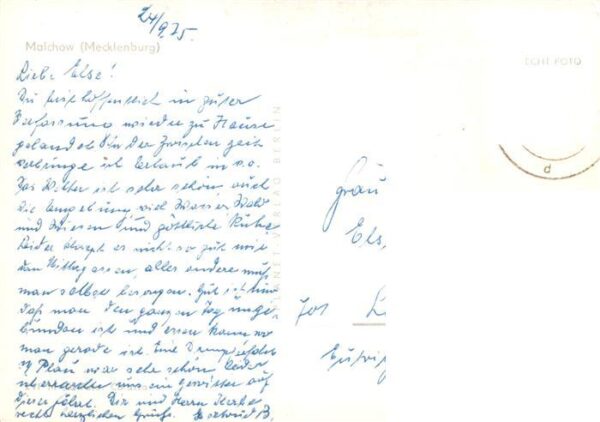 24/9.75.
Malchow (Mecklenburg)
ECHT FOTO
Liebe Else!
Du bist hoffentlich in guter
Verfassung wieder zu Hause
gelandet. In der Zwischenzeit
verbringe ich Urlaub in
Das Wetter ist sehr schön, auch
die Umgebung, viel Wasser, Wald
und Wiesen und göttliche Ruhe
Leider klappt es nicht so gut mit
dem Mittagessen, alles andere muß
man selber besorgen. Gut ist nur
daß man den ganzen Tag unge
bunden ist und essen kann wo
man gerade ist. Eine Dampferfahrt
n. Plau war sehr schön, leider
überraschte uns ein Gewitter auf
dieser Fahrt. Dir und Herrn
recht herzliche Grüße. B.
PLANET-VERLAG BERLIN
d
Frau
Els
705 L